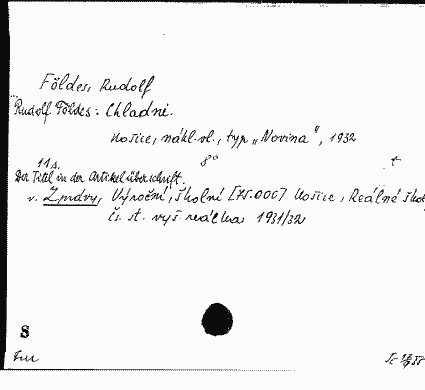 Földes, Rudolf
Rudolf Földes: Chladni.
Košice, nákl. vl., typ „Novina", 1932
11 s. 8° t
Der Titel in der Artikelüberschrift.
v. Zprávy, Výroční, školní [75.006] Košice, Reálné škol
čs. st. vyš. reálka 1931/32
S